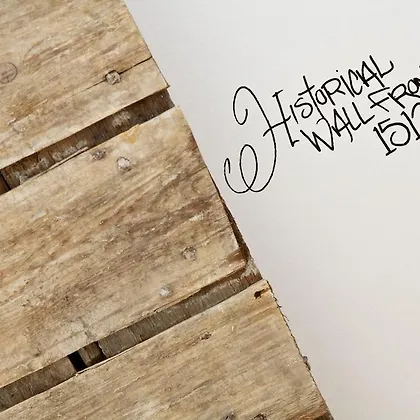 HISTORICAL
WALL FROM
151